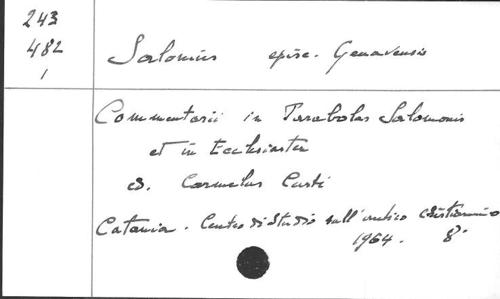 243
482
1
Salonius episc. Genavensis
Commentarii in Parabolas Salomonis
et in Ecclesiasten
ed. Carmelus Curti
Catania. Centro di Studio sull'antico Cristianesimo
1964. 8°